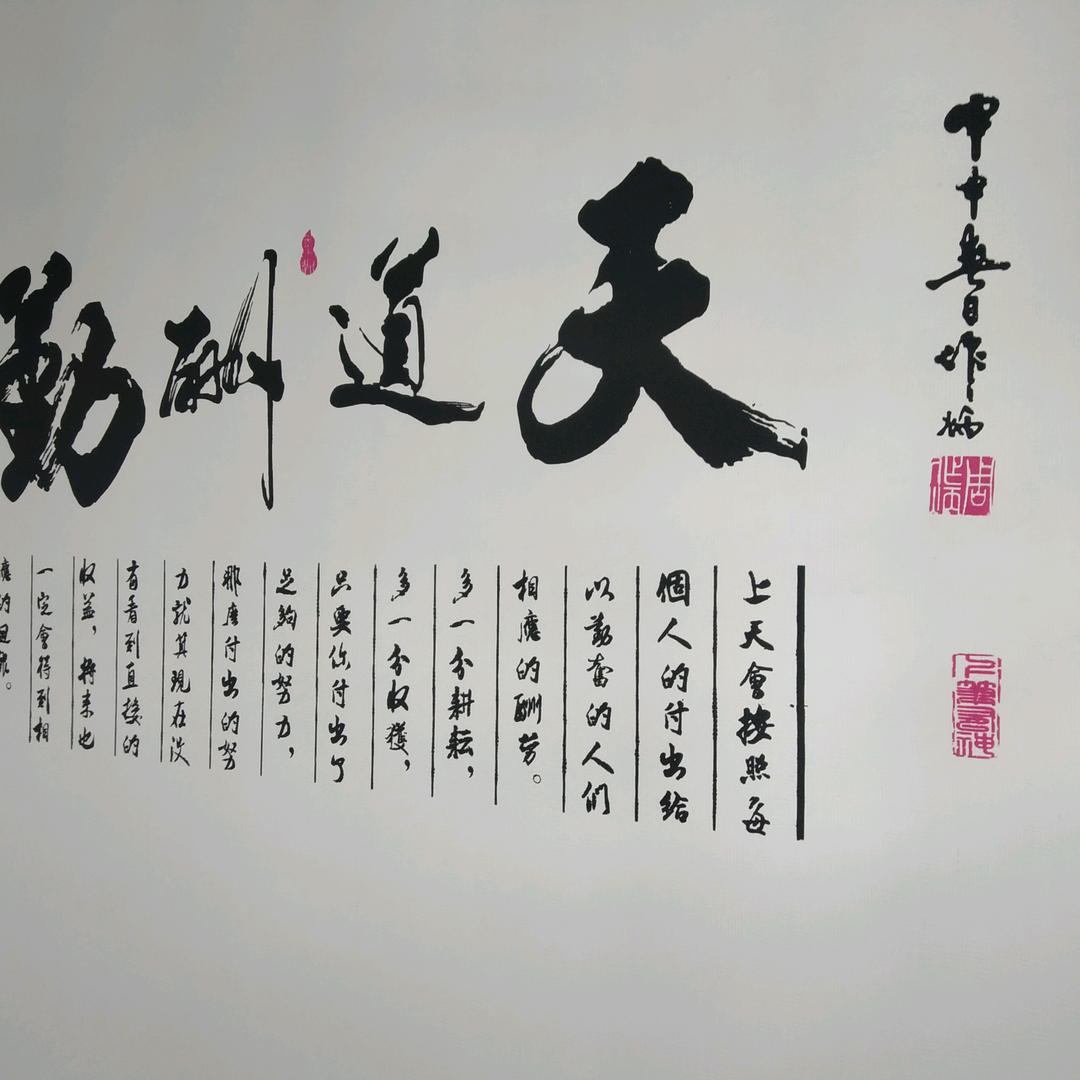 甲申春日作炳
天道酬勤
上天會按照每
個人的付出給
以勤奮的人們
相應的酬勞。
多一分耕耘，
多一分收獲，
只要你付出了
足夠的努力，
那麼付出的努
力就算現在沒
有看到直接的
收益，將來也
一定會得到相
應的回報。